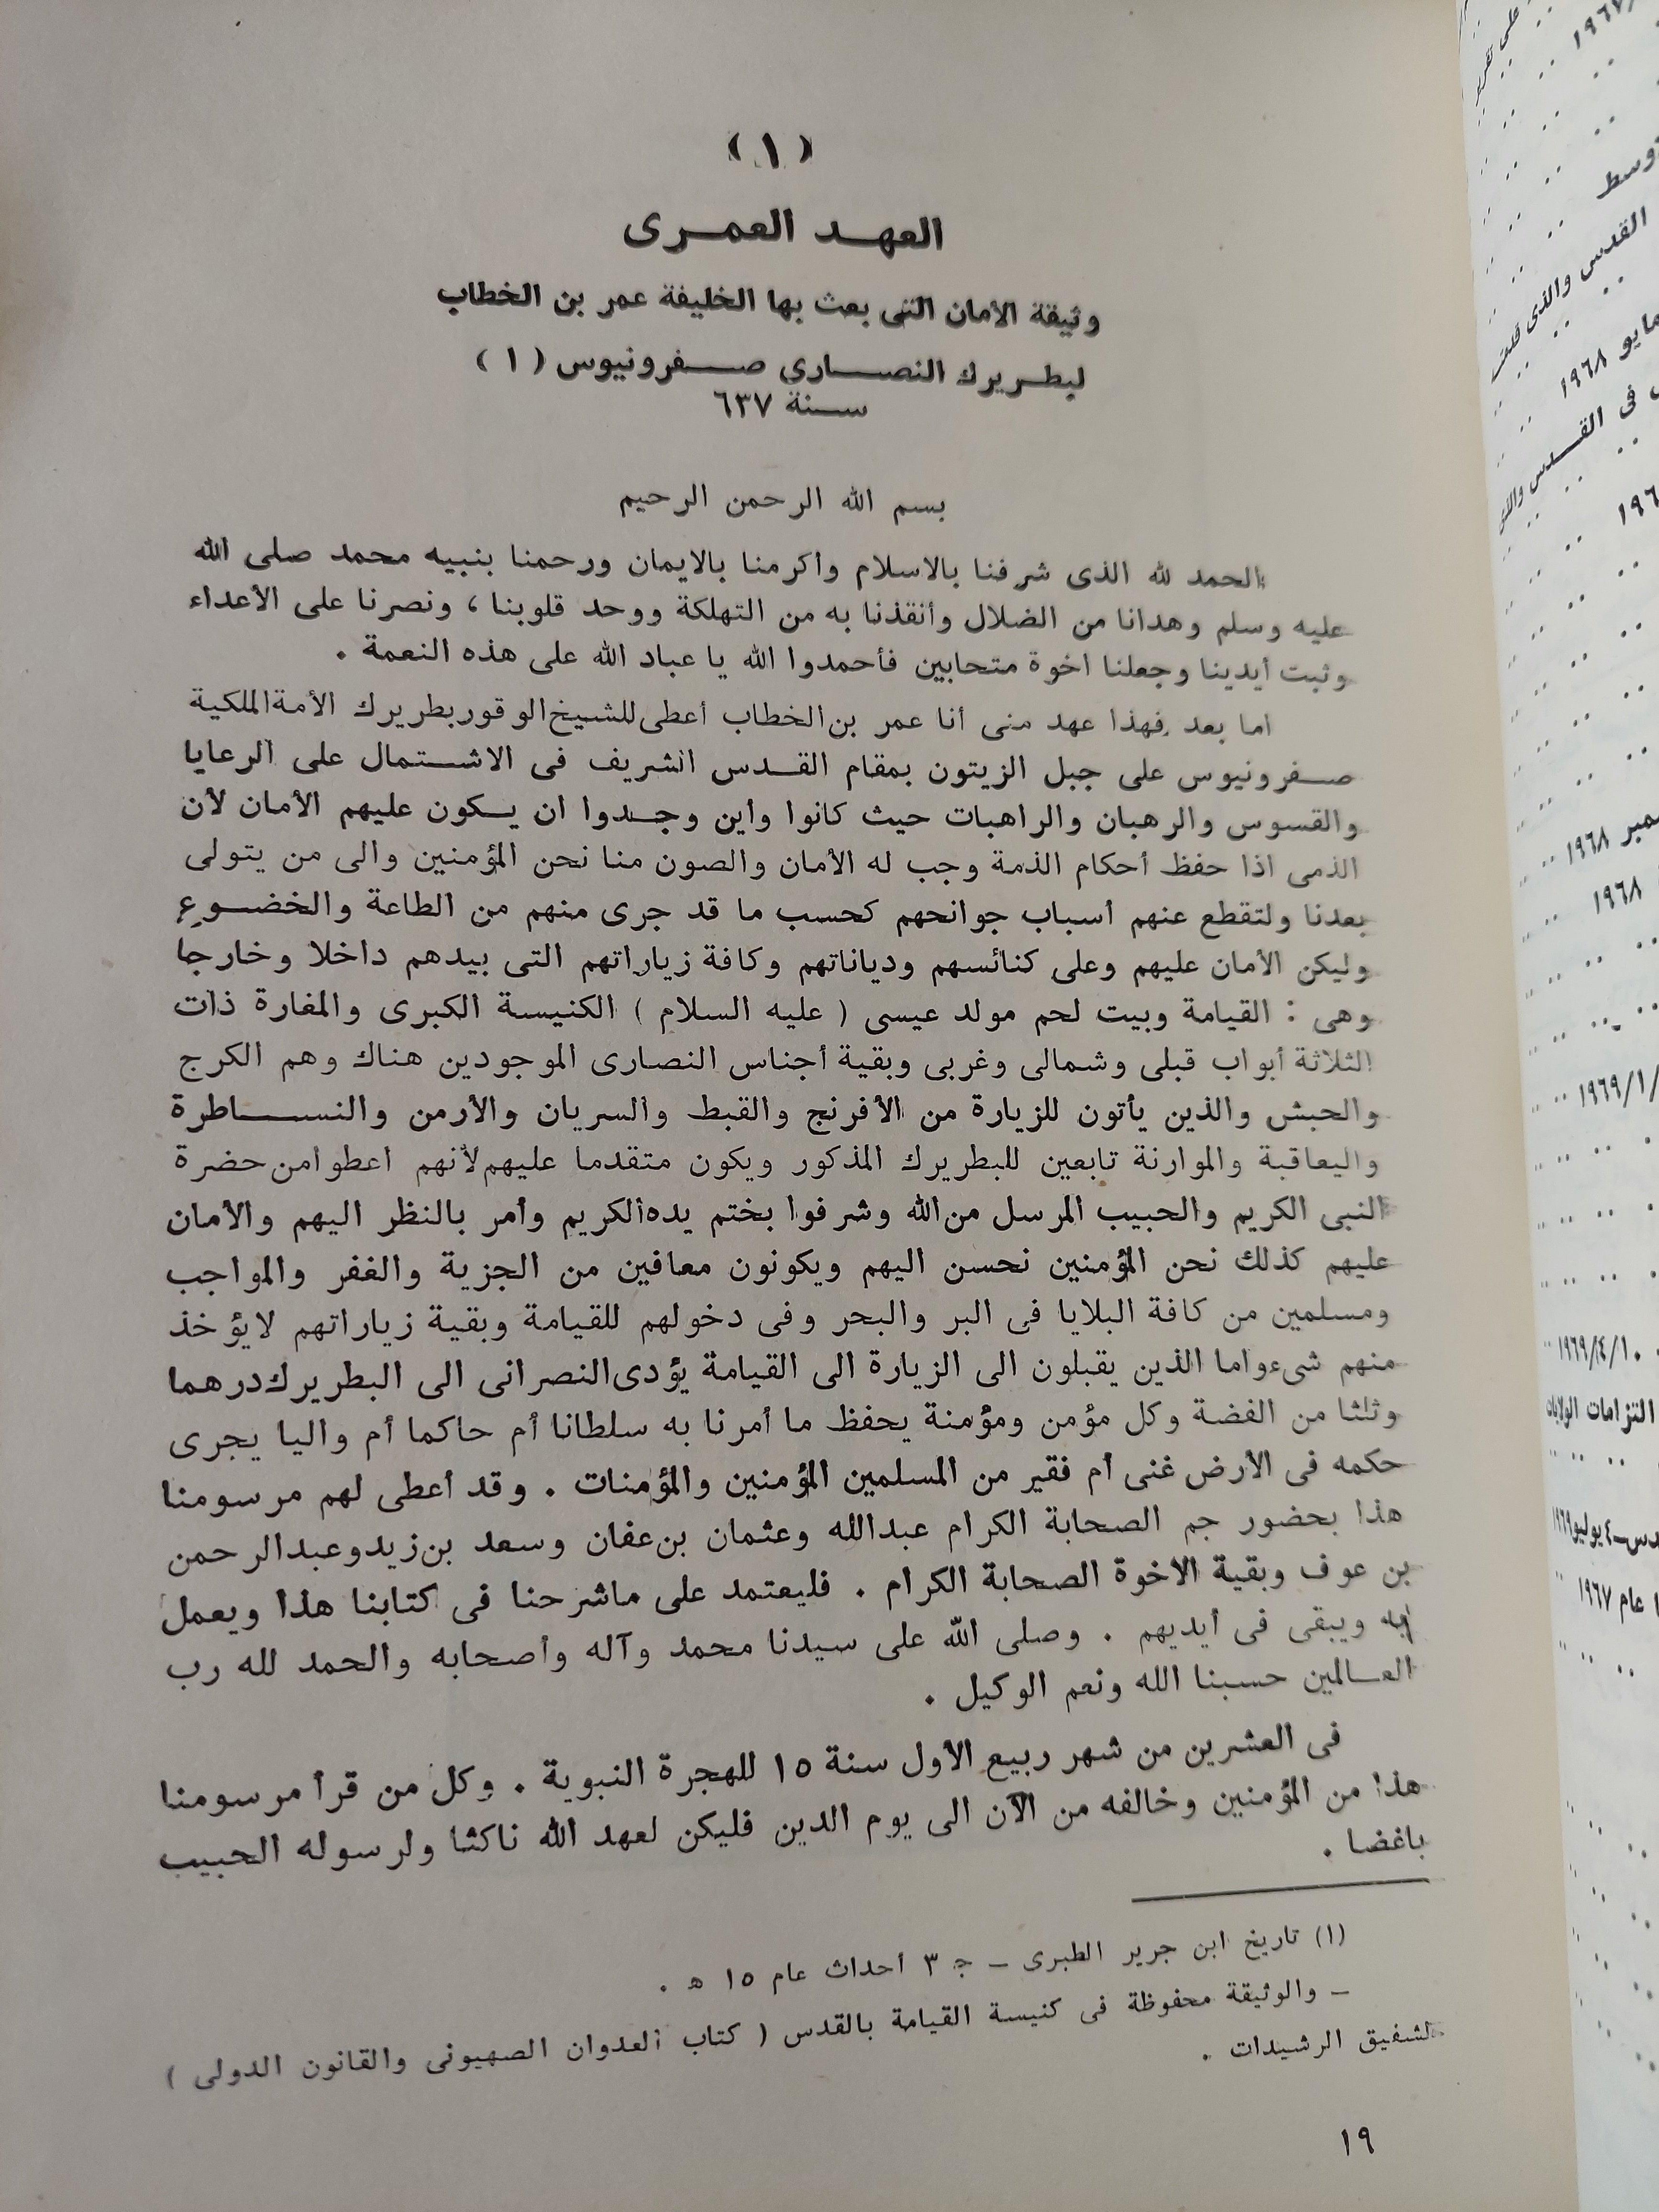 ( ١ )
العهـد العمـرى
وثيقة الأمان التى بعث بها الخليفة عمر بن الخطاب
لبطـريرك النصـارى صـفرونيوس ( ١ )
سـنة ٦٣٧
بسم الله الرحمن الرحيم
الحمد لله الذى شرفنا بالاسلام وأكرمنا بالايمان ورحمنا بنبيه محمد صلى الله
عليه وسلم وهدانا من الضلال وأنقذنا به من التهلكة ووحد قلوبنا ، ونصرنا على الأعداء
وثبت أيدينا وجعلنا اخوة متحابين فأحمدوا الله يا عباد الله على هذه النعمة .
اما بعد فهذا عهد منى أنا عمر بن الخطاب أعطى للشيخ الوقور بطريرك الأمة الملكية
صـفرونيوس على جبل الزيتون بمقام القـدس الشريف فى الاشـتمال على الرعايا
والقسوس والرهبان والراهبات حيث كانوا وأين وجـدوا ان يـكون عليهم الأمان لأن
الذمى اذا حفظ أحكام الذمة وجب له الأمان والصون منا نحن المؤمنين والى من يتولى
بعدنا ولتقطع عنهم أسباب جوانحهم كحسب ما قد جرى منهم من الطاعة والخضـوع
وليكن الأمان عليهم وعلى كنائسهم ودياناتهم وكافة زياراتهم التى بيدهم داخلا وخارجا
وهى : القيامة وبيت لحم مولد عيسى ( عليه السلام ) الكنيسة الكبرى والمغارة ذات
الثلاثة أبواب قبلى وشمالى وغربى وبقية أجناس النصارى الموجودين هناك وهم الكرج
والحبش والذين يأتون للزيارة من الأفرنج والقبط والسريان والأرمن والنسـاطرة
واليعاقبة والموارنة تابعين للبطريرك المذكور ويكون متقدما عليهم لأنهم اعطوا من حضرة
النبى الكريم والحبيب المرسل من الله وشرفوا بختم يده الكريم وأمر بالنظر اليهم والأمان
عليهم كذلك نحن المؤمنين نحسن اليهم ويكونون معافين من الجزية والغفر والمواجب
ومسلمين من كافة البلايا فى البر والبحر وفى دخولهم للقيامة وبقية زياراتهم لايؤخذ
منهم شىء واما الذين يقبلون الى الزيارة الى القيامة يؤدى النصرانى الى البطريرك درهما
وثلثا من الفضة وكل مؤمن ومؤمنة يحفظ ما أمرنا به سلطانا أم حاكما أم واليا يجرى
حكمه فى الأرض غنى أم فقير من المسلمين المؤمنين والمؤمنات . وقد أعطى لهم مرسومنا
هذا بحضور جم الصحابة الكرام عبدالله وعثمان بن عفان وسعد بن زيد وعبد الرحمن
بن عوف وبقية الاخوة الصحابة الكرام . فليعتمد على ماشرحنا فى كتابنا هذا ويعمل
به ويبقى فى أيديهم . وصلى الله على سيدنا محمد وآله وأصحابه والحمد لله رب
العـالمين حسبنا الله ونعم الوكيل .
فى العشرين من شهر ربيع الأول سنة ١٥ للهجرة النبوية . وكل من قرأ مرسومنا
هذا من المؤمنين وخالفه من الآن الى يوم الدين فليكن لعهد الله ناكثا ولرسوله الحبيب
باغضا .
(١) تاريخ ابن جرير الطبرى – جـ ٣ أحداث عام ١٥ هـ .
– والوثيقة محفوظة فى كنيسة القيامة بالقدس ( كتاب العدوان الصهيونى والقانون الدولى )
لشفيق الرشيدات .
١٩
على
وسط
القدس والذى
مايو ١٩٦٨
فى القـدس
١٩٦٨
١٩٦٩/١/
١٩٦٩/٤/١٠
التزامات الولايات
٤ يوليو ١٩٦٩
عام ١٩٦٧